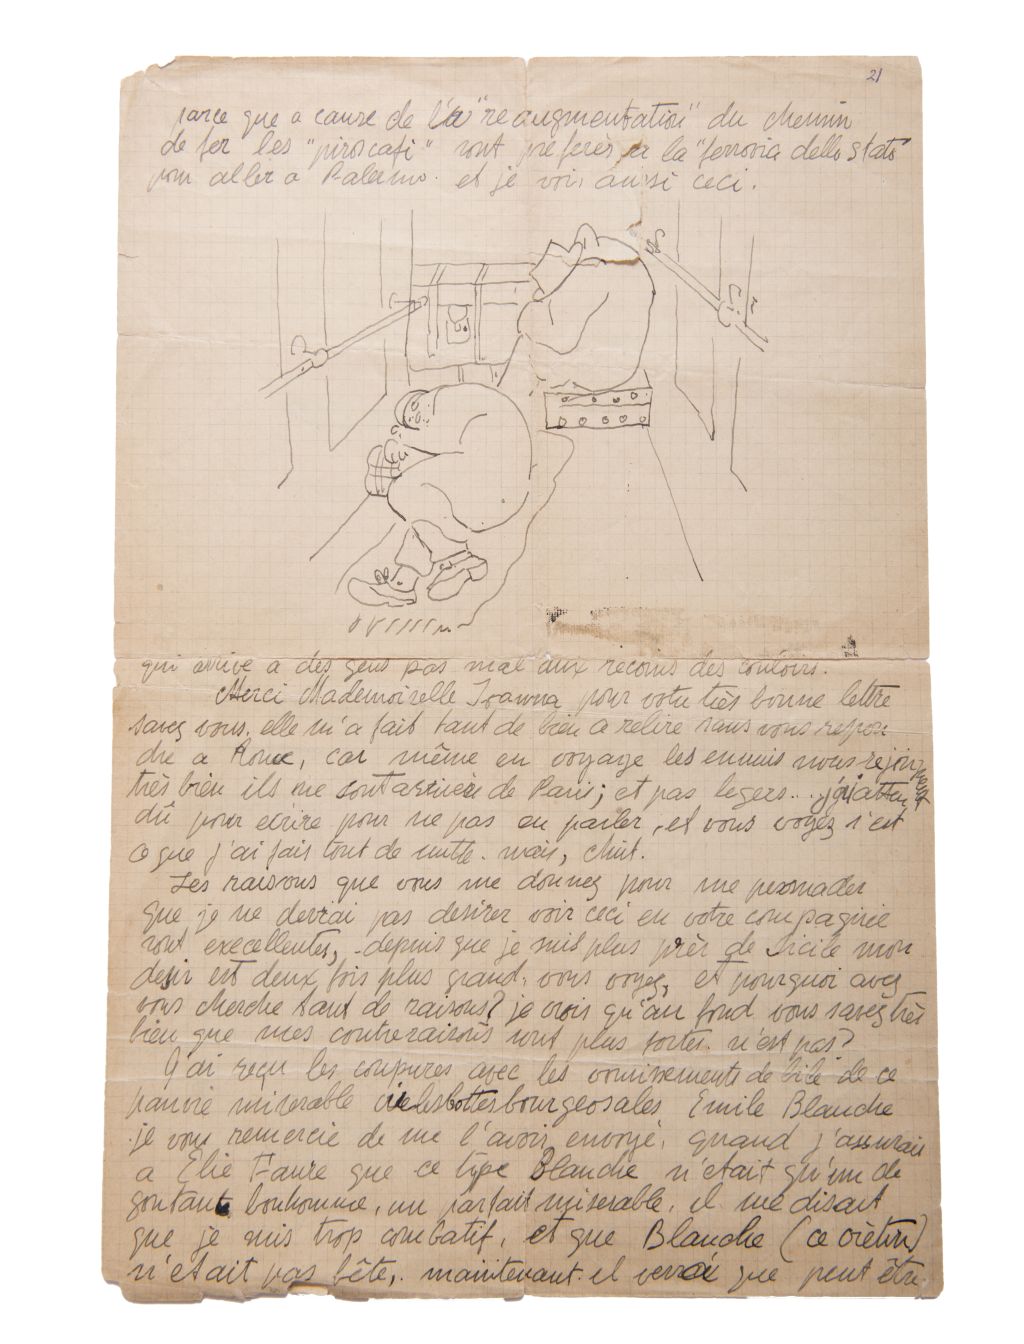 21
parce que a cause de la "reaugmentation" du chemin
de fer les "piroscafi" sont preferès a la "ferrovia dello stato"
pour aller a Palermo. et je vois aussi ceci.
qui arrive a des gens pas mal aux recoins des couloirs.
Merci Mademoiselle Joanna pour votre très bonne lettre
savez vous. elle m'a fait tant de bien a relire sans vous repon
dre a Rome, car même en voyage les ennuis nous rejoignent
très bien ils me sont arrivés de Paris; et pas legers... j'ai atten
dû pour ecrire pour ne pas en parler, et vous voyez s'est
ce que j'ai fais tout de suite. mais, chut.
Les raisons que vous me donnez pour me persuader
que je ne devrai pas desirer voir ceci en votre compagnie
sont execellentes, depuis que je suis plus près de Sicile mon
desir est deux fois plus grand, vous voyez, et pourquoi avez
vous cherche tant de raisons? je crois qu'au fond vous savez très
bien que mes contreraisons sont plus fortes. n'est pas?
J'ai reçu les coupures avec les vomissements de bile de ce
pauvre miserable bourgeosales Emile Blanche
je vous remercie de me l'avoir envoyé, quand j'assurais
a Elie Faure que ce type Blanche n'etait qu'un dé
goutant bonhomme, un parfait miserable, il me disait
que je suis trop combatif, et que Blanche (ce crètin)
n'etait pas bête, maintenant il verra que peut être